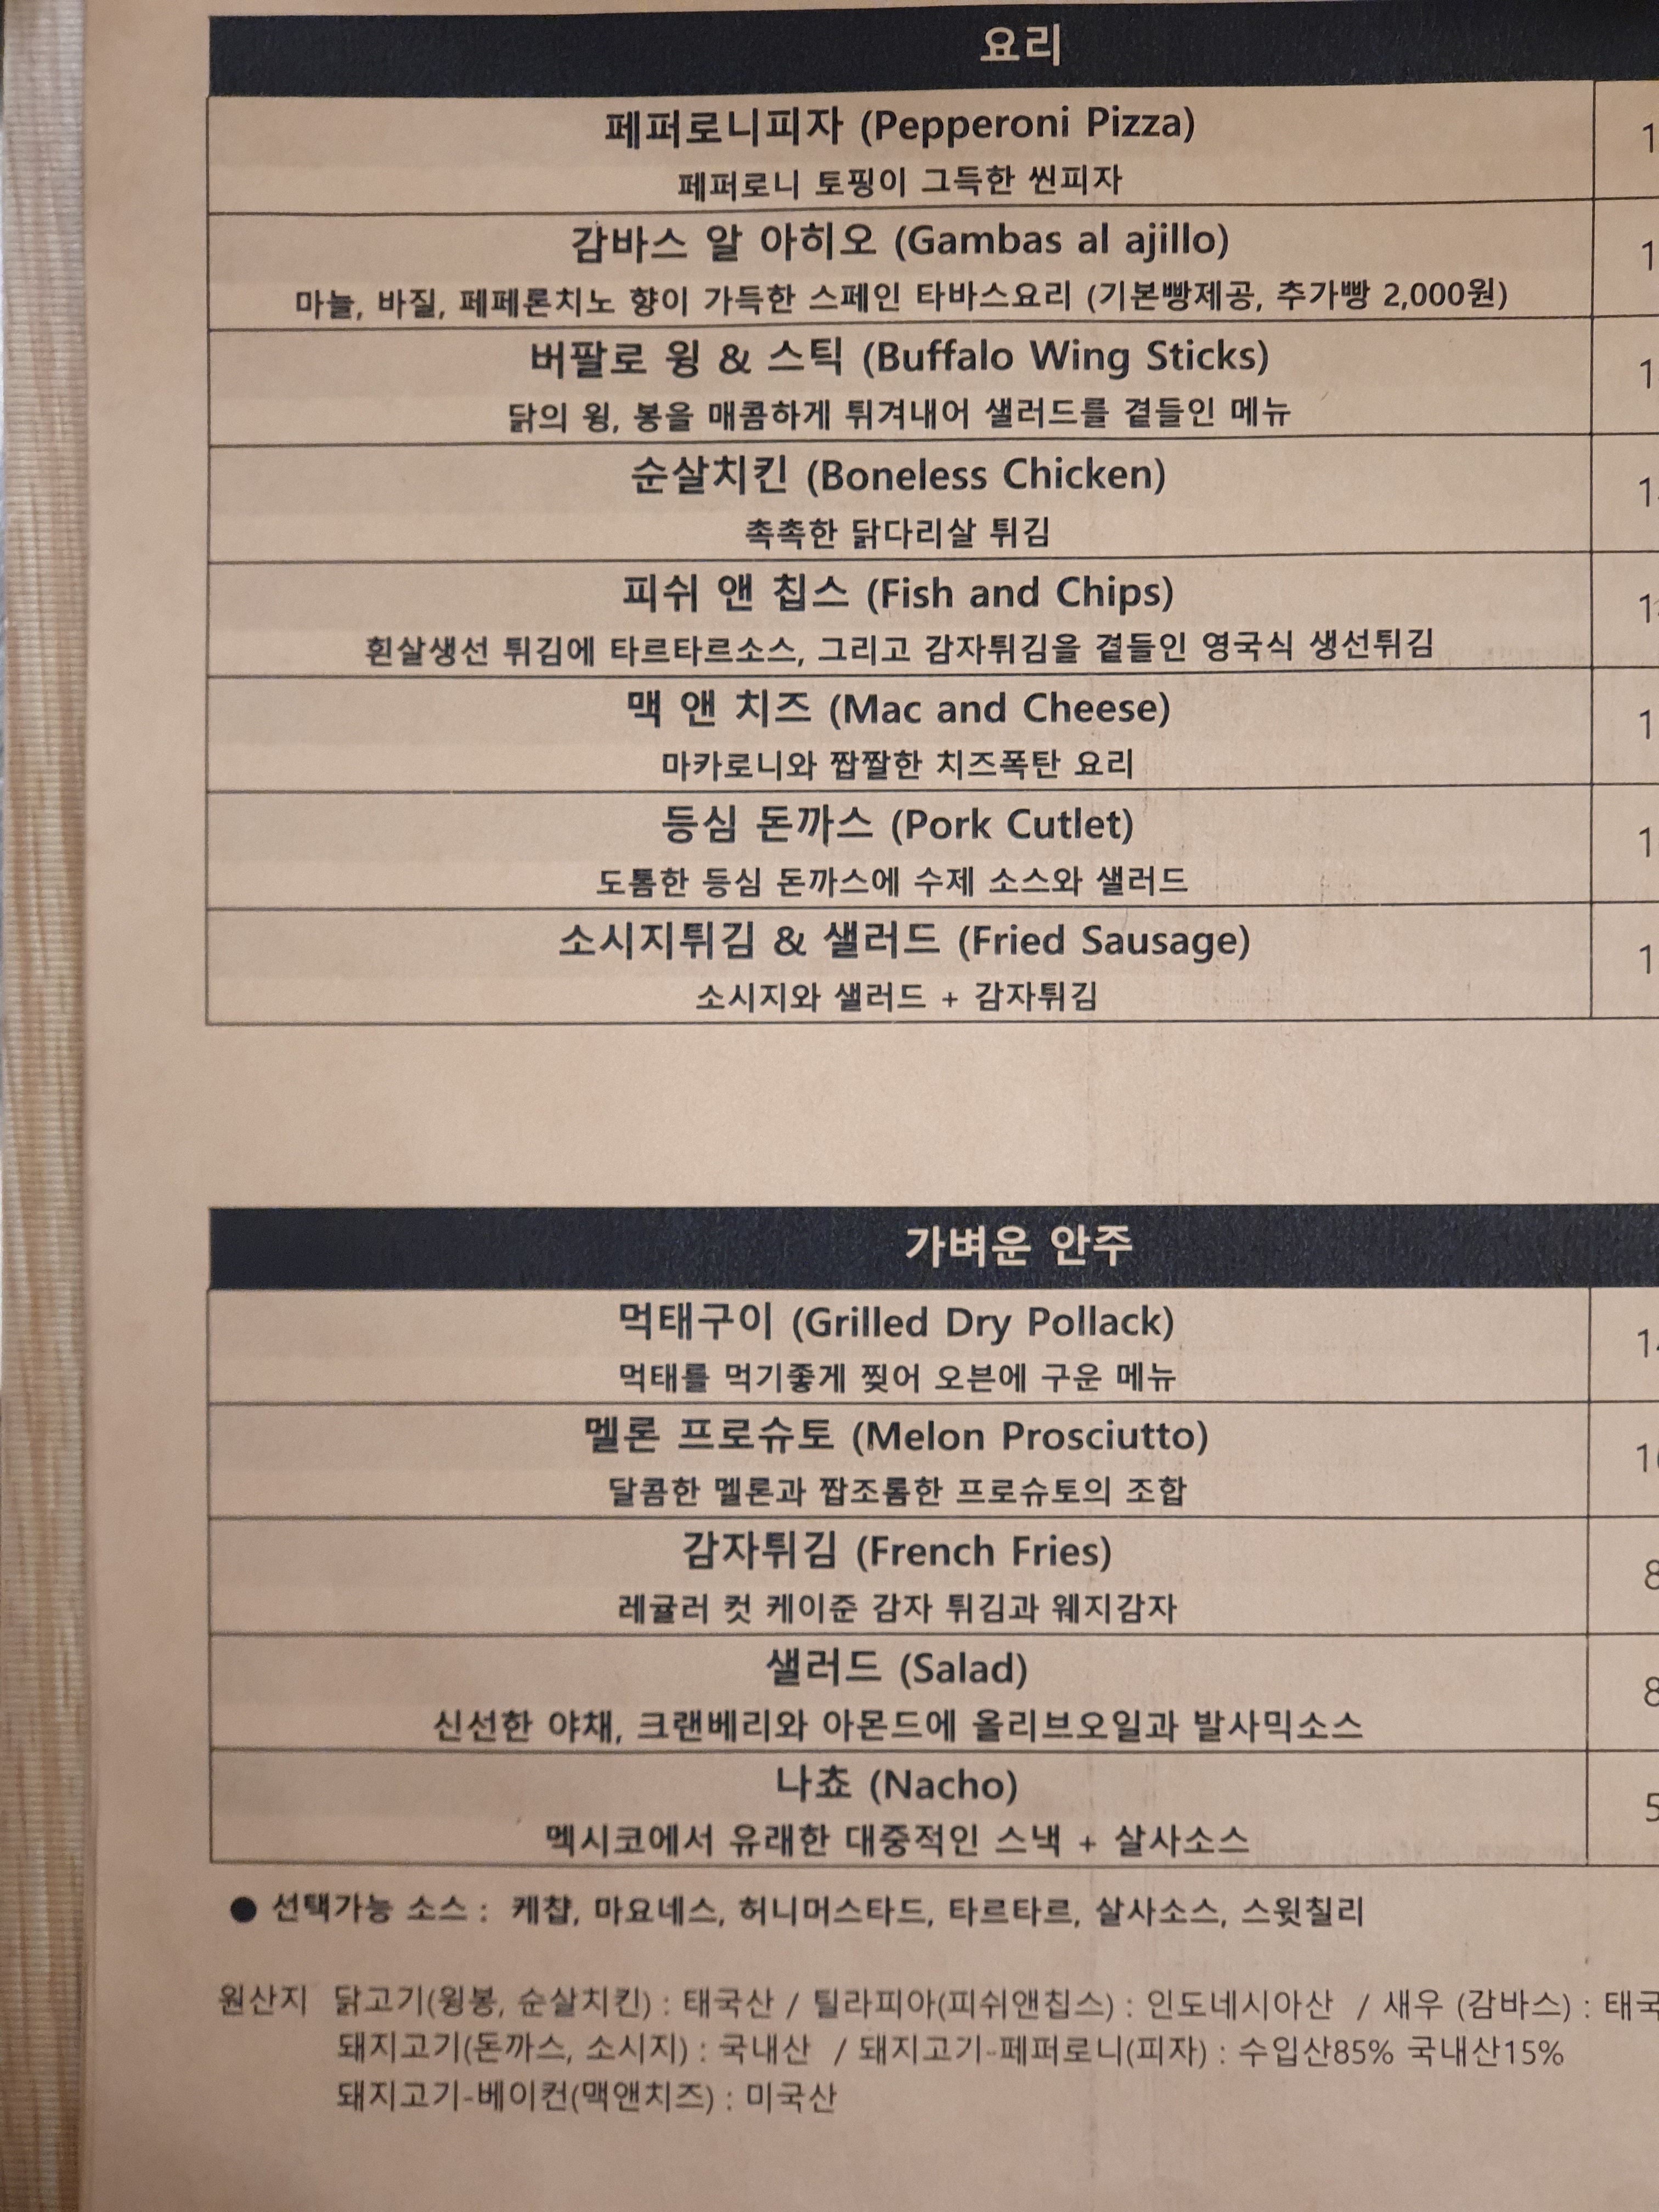 요리
페퍼로니피자 (Pepperoni Pizza)
페퍼로니 토핑이 그득한 씬피자
감바스 알 아히오 (Gambas al ajillo)
마늘, 바질, 페페론치노 향이 가득한 스페인 타바스요리 (기본빵제공, 추가빵 2,000원)
버팔로 윙 & 스틱 (Buffalo Wing Sticks)
닭의 윙, 봉을 매콤하게 튀겨내어 샐러드를 곁들인 메뉴
순살치킨 (Boneless Chicken)
촉촉한 닭다리살 튀김
피쉬 앤 칩스 (Fish and Chips)
흰살생선 튀김에 타르타르소스, 그리고 감자튀김을 곁들인 영국식 생선튀김
맥 앤 치즈 (Mac and Cheese)
마카로니와 짭짤한 치즈폭탄 요리
등심 돈까스 (Pork Cutlet)
도톰한 등심 돈까스에 수제 소스와 샐러드
소시지튀김 & 샐러드 (Fried Sausage)
소시지와 샐러드 + 감자튀김
가벼운 안주
먹태구이 (Grilled Dry Pollack)
먹태를 먹기좋게 찢어 오븐에 구운 메뉴
멜론 프로슈토 (Melon Prosciutto)
달콤한 멜론과 짭조롬한 프로슈토의 조합
감자튀김 (French Fries)
레귤러 컷 케이준 감자 튀김과 웨지감자
샐러드 (Salad)
신선한 야채, 크랜베리와 아몬드에 올리브오일과 발사믹소스
나쵸 (Nacho)
멕시코에서 유래한 대중적인 스낵 + 살사소스
● 선택가능 소스 : 케챱, 마요네스, 허니머스타드, 타르타르, 살사소스, 스윗칠리
원산지 닭고기(윙봉, 순살치킨) : 태국산 / 틸라피아(피쉬앤칩스) : 인도네시아산 / 새우 (감바스) : 태국
돼지고기(돈까스, 소시지) : 국내산 / 돼지고기-페퍼로니(피자) : 수입산85% 국내산15%
돼지고기-베이컨(맥앤치즈) : 미국산